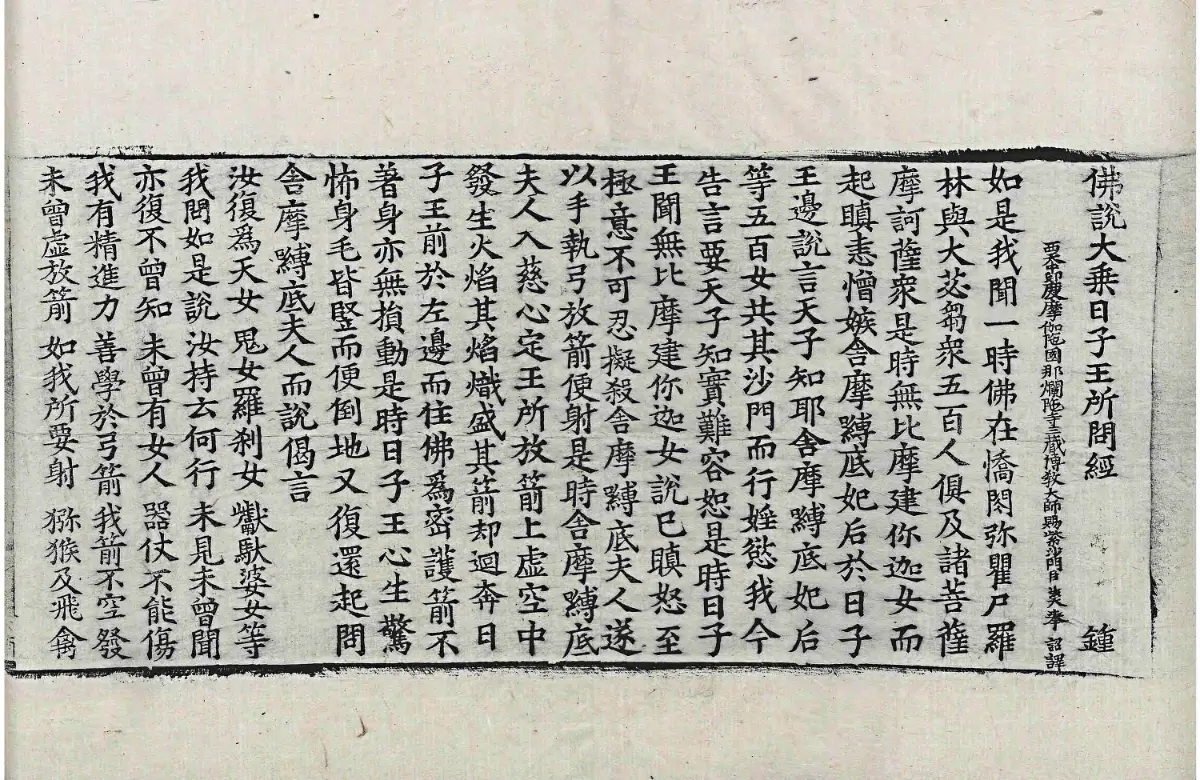 佛說大乘日子王所問經 鍾
摩伽陁國那爛陁寺三藏傳教大師賜紫沙門臣 奉 詔譯
如是我聞一時佛在憍閃弥瞿尸羅
林與大苾芻衆五百人俱及諸菩薩
摩訶薩衆是時無比摩建你迦女而
起瞋恚憎嫉舍摩嚩底妃后於日子
王邊說言天子知耶舍摩嚩底妃后
等五百女共其沙門而行婬慾我今
告言要天子知實難容恕是時日子
王聞無比摩建你迦女說已瞋怒至
極意不可忍擬殺舍摩嚩底夫人遂
以手執弓放箭便射是時舍摩嚩底
夫人入慈心定王所放箭上虛空中
發生火焰其焰熾盛其箭却迴奔日
子王前於左邊而住佛爲密護箭不
著身亦無損動是時日子王心生驚
怖身毛皆竪而便倒地又復還起問
舍摩嚩底夫人而說偈言
汝復爲天女 鬼女羅刹女 巘馱婆女等
我問如是說 汝持云何行 未見未曾聞
亦復不曾知 未曾有女人 器仗不能傷
我有精進力 善學於弓箭 我箭不空發
未曾虛放箭 如我所要射 猕猴及飛禽